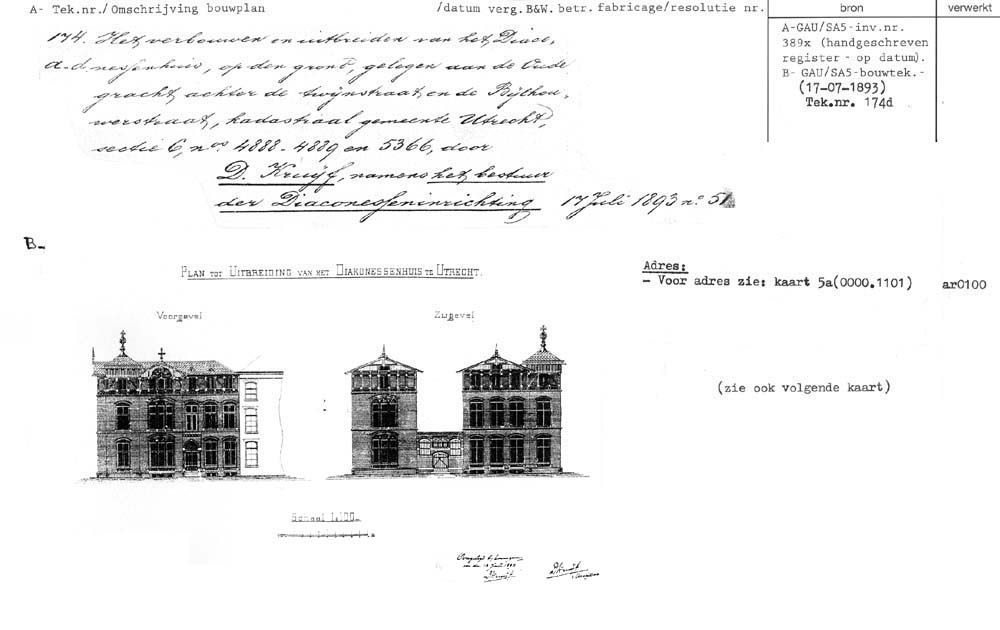 A- Tek.nr./ Omschrijving bouwplan
/datum verg. B&W. betr. fabricage/resolutie nr.
bron
verwerkt
174. Het verbouwen en uitbreiden van het Diaco-
a.-d. nessenhuis, op den grond, gelegen aan de Oude
gracht, achter de twijnstraat, en de Bijlhou-
werstraat, kadastraal gemeente Utrecht,
sectie C, nos 4888-4889 en 5366, door
D. Kruijf, namens het bestuur
der Diaconesseninrichting 17 Juli 1893 no 51
A-GAU/SA5-inv.nr.
389x (handgeschreven
register - op datum).
B- GAU/SA5-bouwtek.-
(17-07-1893)
Tek.nr. 174d
B-
PLAN TOT UITBREIDING VAN HET DIAKONESSENHUIS TE UTRECHT.
Voorgevel
Zijgevel
Schaal 1:100
Adres:
- Voor adres zie: kaart 5a(0000.1101)
ar0100
(zie ook volgende kaart)